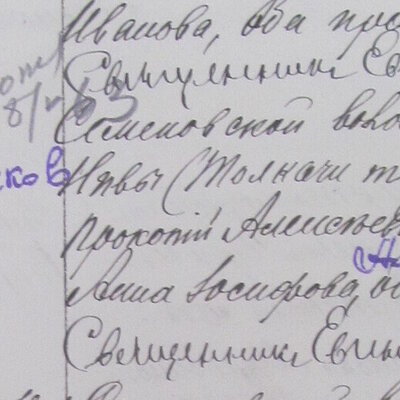 Иванова, оба пра
Священникъ Ев
Семеновской воло
Нивы (Толкачи т
Прокопій Алексѣев
Анна Іосифова, об
Священникъ Евгеній